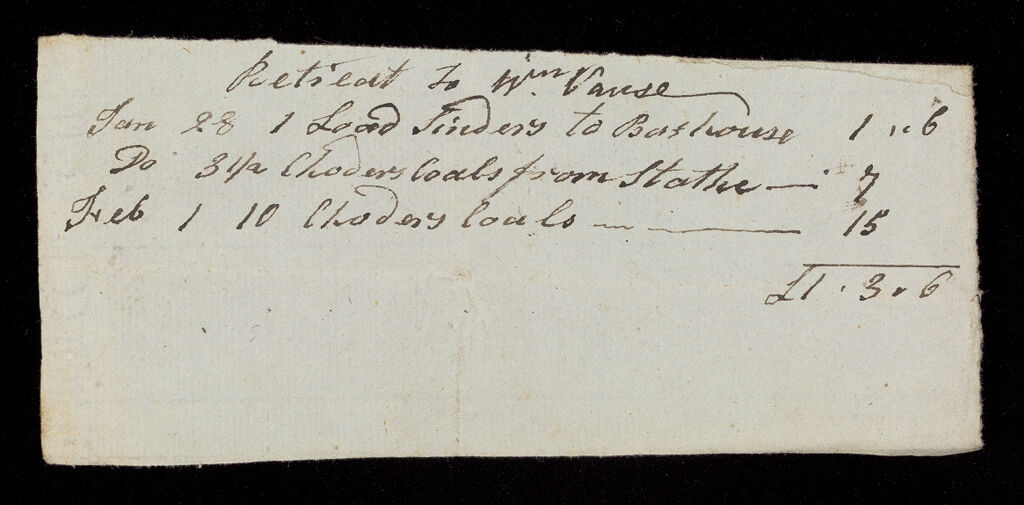 Retreat To Wm. Vause
Jan 28 1 Load Sinders to Bathouse 1 " 6
Do 3 1/2 Choders Coals from Stathe — 7
Feb 1 10 Choders Coals — 15
£1 . 3 " 6